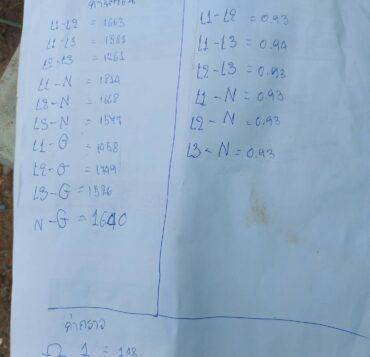 L1-L2 = 1663
L1-L3 = 1881
L2-L3 = 1261
L1-N = 1814
L2-N = 1668
L3-N = 1577
L1-G = 1958
L2-G = 1749
L3-G = 1526
N-G = 1640
L1-L2 = 0.93
L1-L3 = 0.94
L2-L3 = 0.93
L1-N = 0.93
L2-N = 0.93
L3-N = 0.93
ค่ากราว
Ω 1 = 148